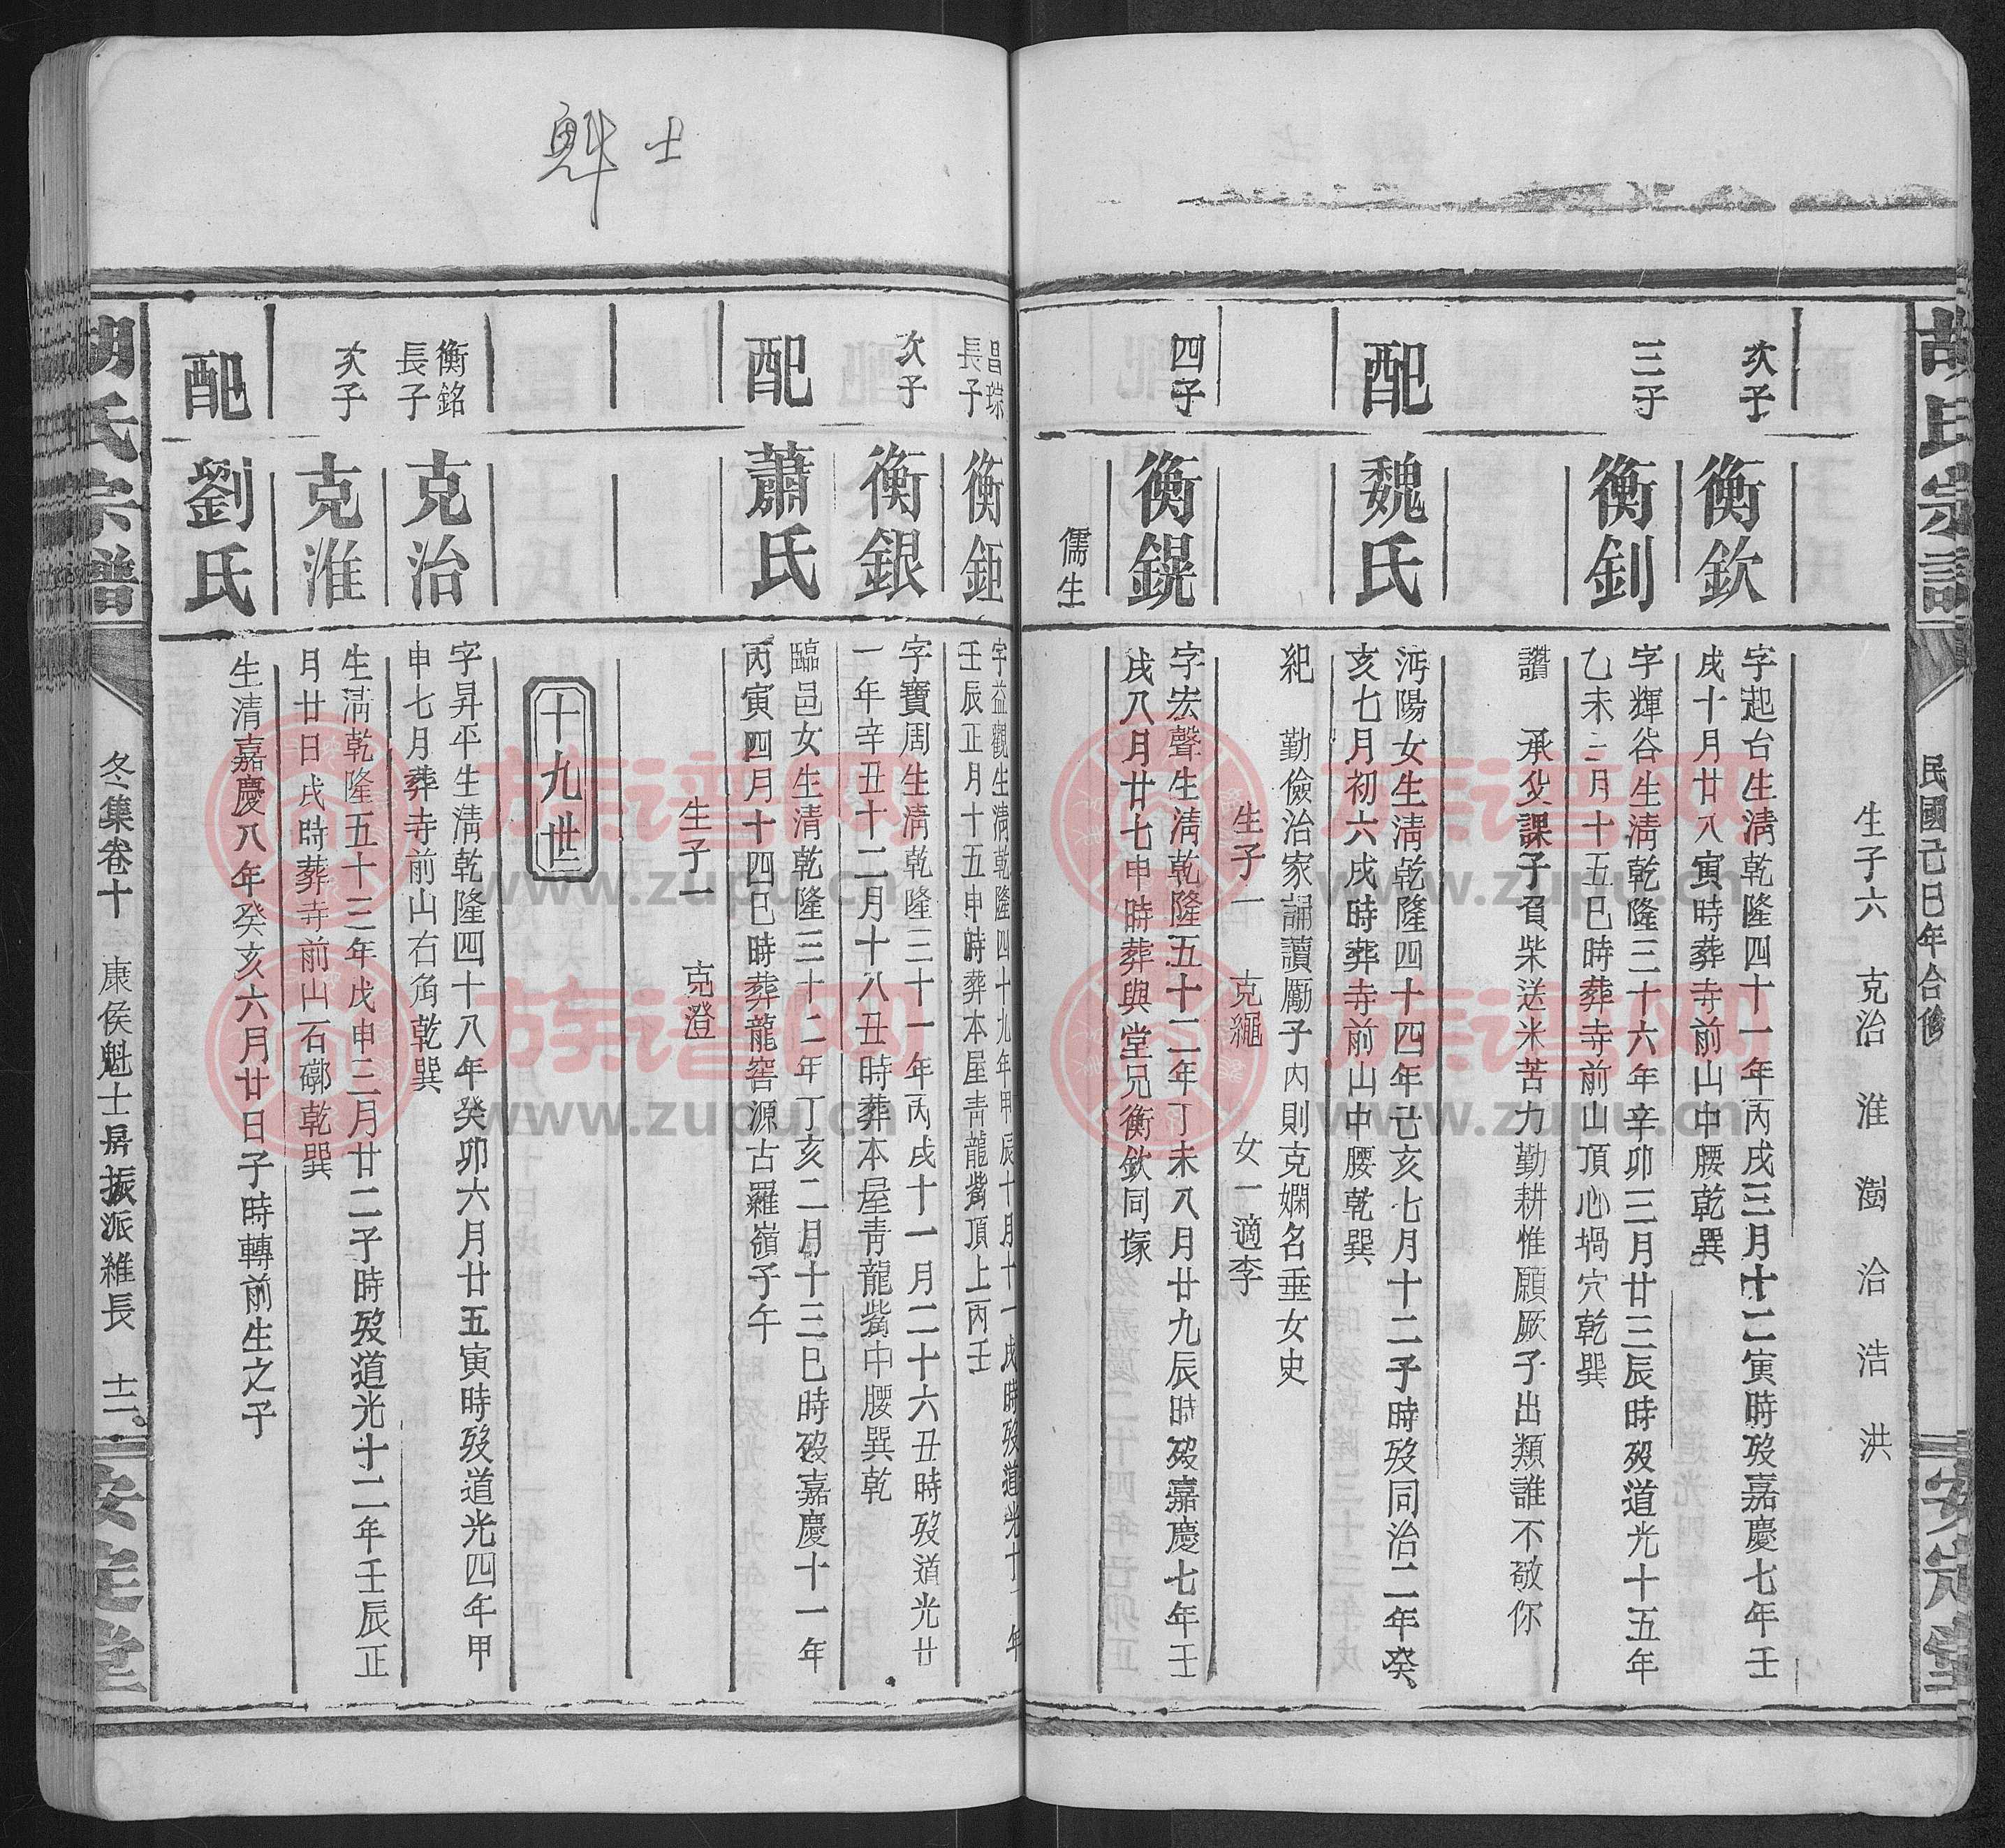 胡氏宗譜
民國己巳年合修
安定堂
生子六　克治　淮　澍　洽　浩　洪
次子
衡欽
字起台生清乾隆四十一年丙戌三月十二寅時歿嘉慶七年壬
戌十月廿八寅時葬寺前山中腰乾巽
三子
衡釗
字輝谷生清乾隆三十六年辛卯三月廿三辰時歿道光十五年
乙未二月十五巳時葬寺前山頂心堝穴乾巽
讚　承父課子負柴送米苦力勤耕惟願厥子出類誰不敬你
配
魏氏
沔陽女生清乾隆四十四年己亥七月十二子時歿同治二年癸
亥七月初六戌時葬寺前山中腰乾巽
紀　勤儉治家誦讀勵子內則克嫻名垂女史
生子一　克繩　女一適李
四子
衡鎤
字宏聲生清乾隆五十二年丁未八月廿九辰時歿嘉慶七年壬
戌八月廿七申時葬與堂兄衡欽同塚
儒生
昌琮
長子
衡鉅
字益觀生清乾隆四十九年甲辰十月十一戌時歿道光十 年
壬辰正月十五申時葬本屋青龍嘴頂上丙壬
次子
衡銀
字寶周生清乾隆三十一年丙戌十一月二十六丑時歿道光廿
一年辛丑十二月十八丑時葬本屋青龍嘴中腰巽乾
配
蕭氏
臨邑女生清乾隆三十二年丁亥二月十三巳時歿嘉慶十一年
丙寅四月十四巳時葬龍窖源古羅嶺子午
生子一　克澄
十九世
衡銘
長子
克治
字昇平生清乾隆四十八年癸卯六月廿五寅時歿道光四年甲
申七月葬寺前山右角乾巽
次子
克淮
生清乾隆五十三年戊申三月廿二子時歿道光十二年壬辰正
月廿日戌時葬寺前山石礤乾巽
配
劉氏
生清嘉慶八年癸亥六月廿日子時轉前生之子
胡氏宗譜
冬集卷十　康侯魁士房振派維長　十二
安定堂
魁士
族谱网
www.zupu.cn
族谱网
www.zupu.cn
族谱网
www.zupu.cn
族谱网
www.zupu.cn